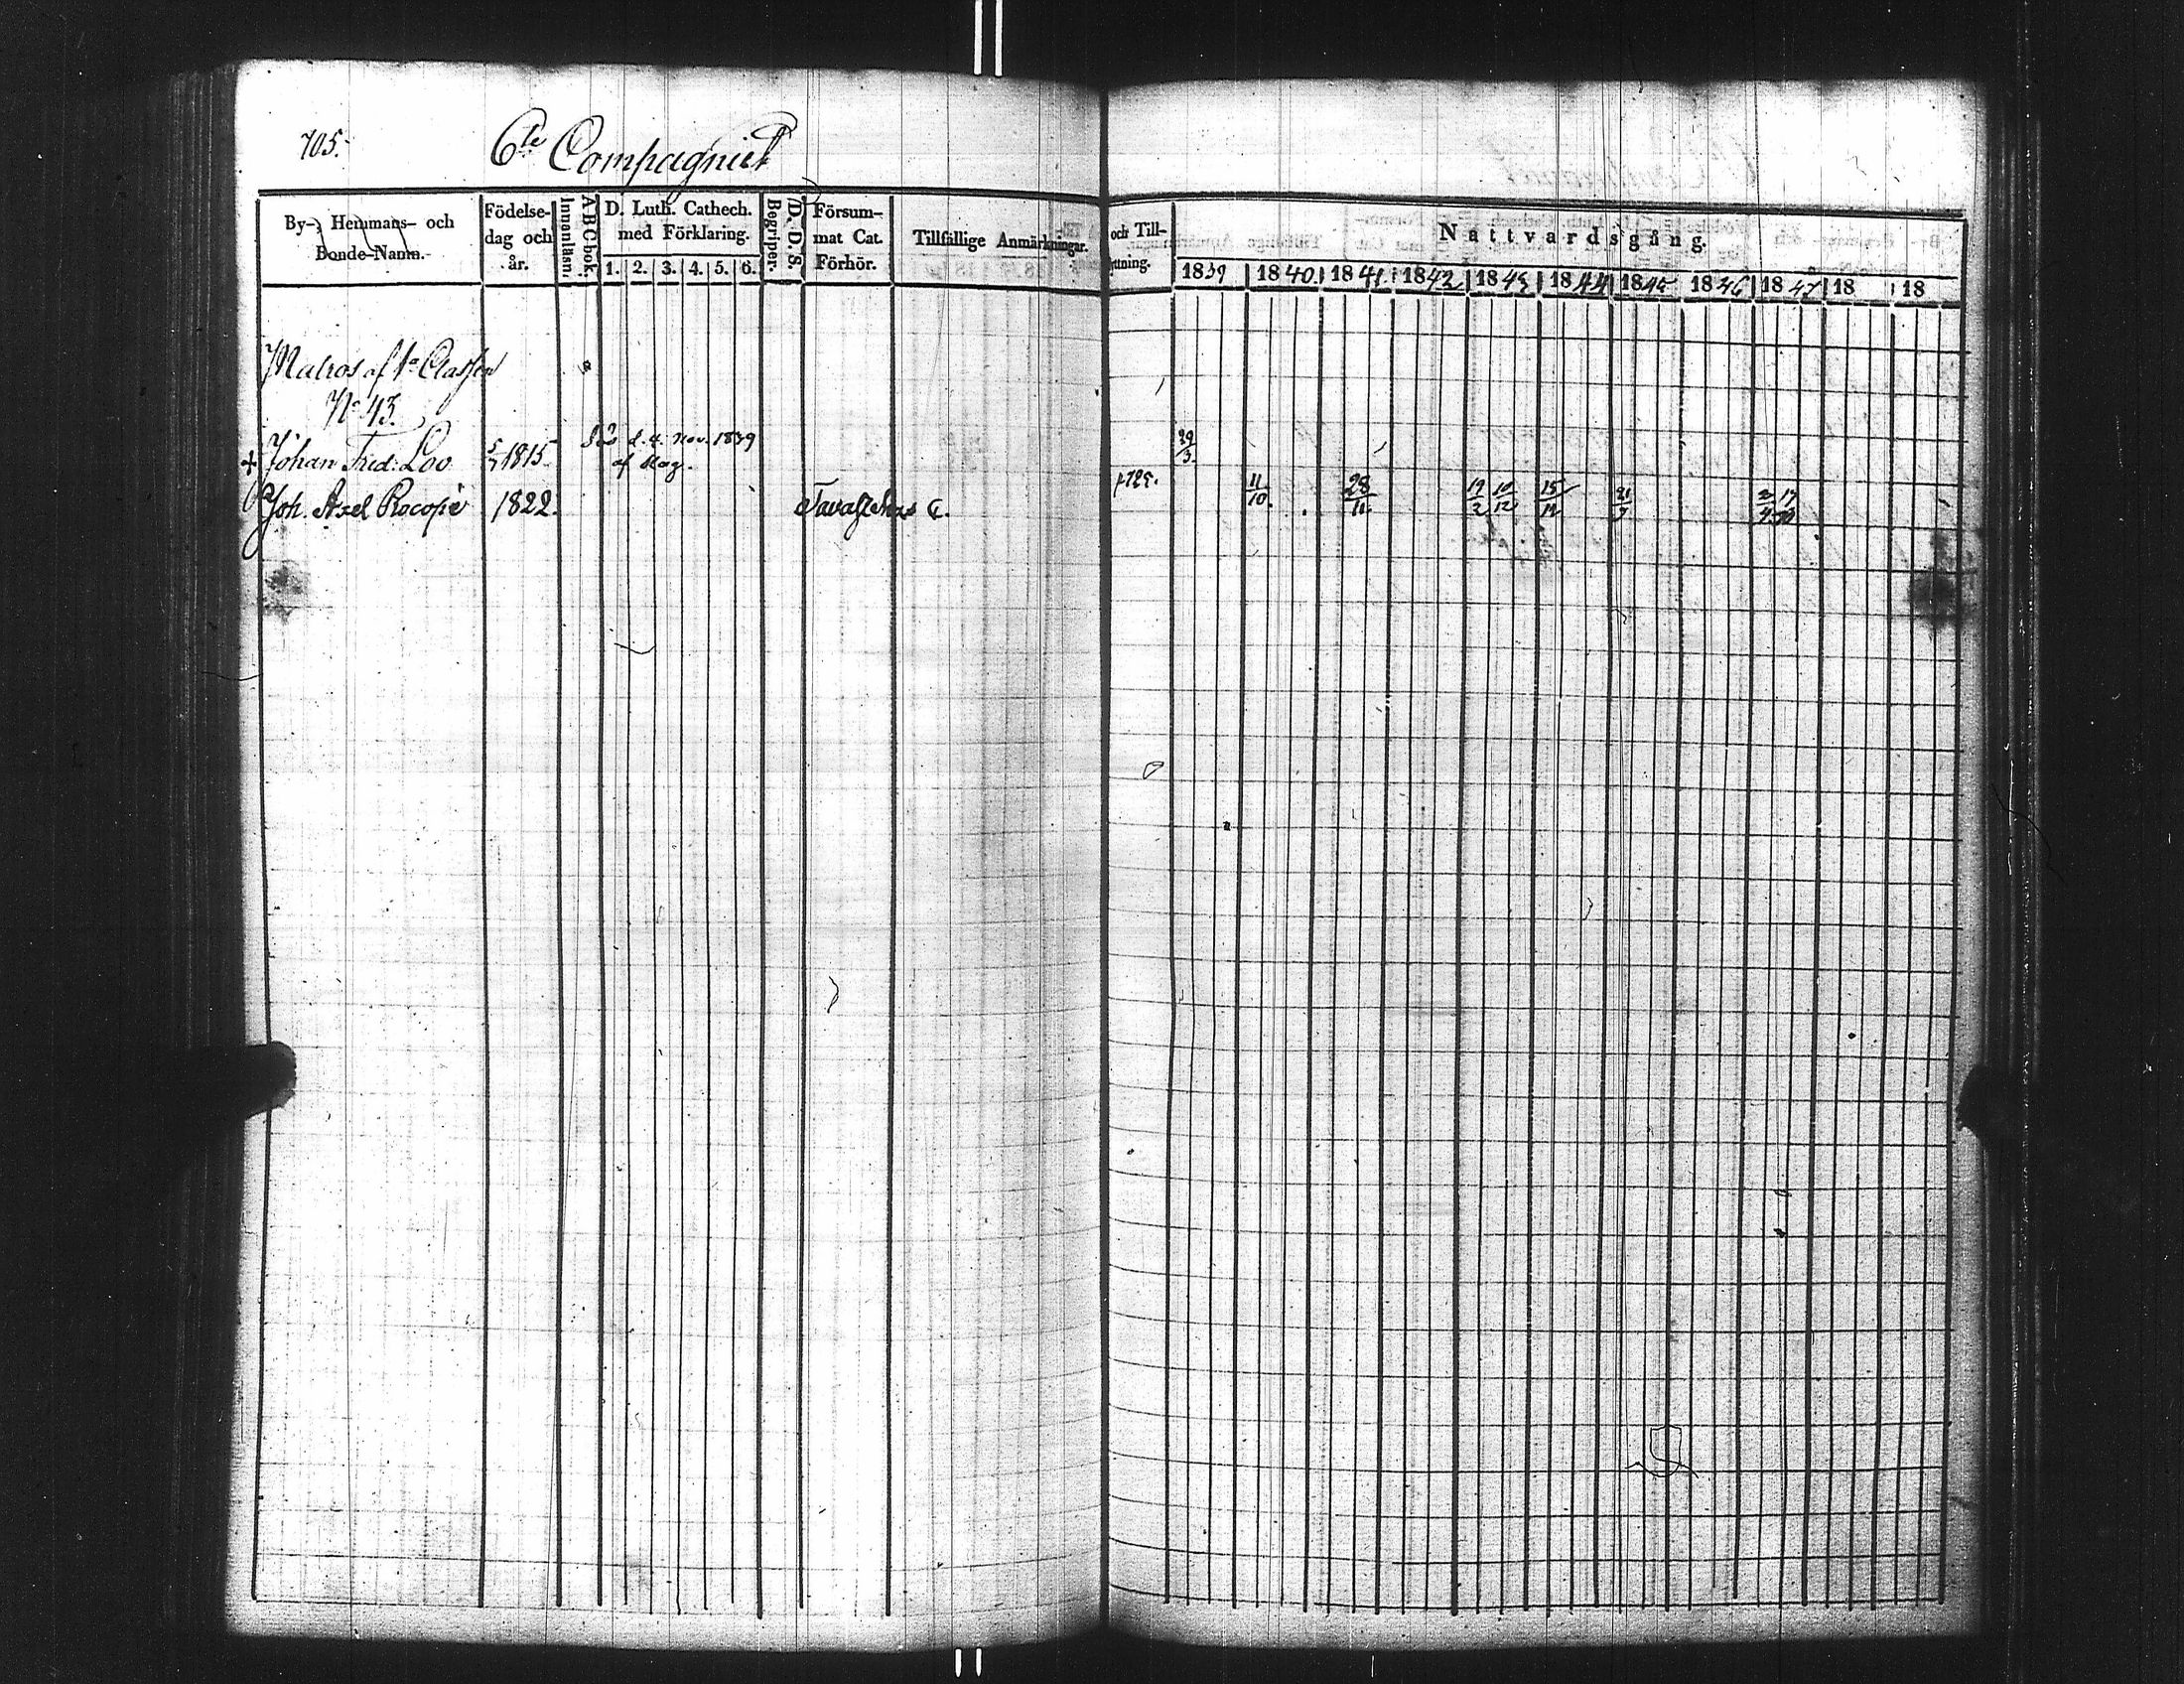 705.
6te Compagniet
By-, Hemmans- och Bonde-Namn.
Födelse-dag och år.
Innanläsn.
ABC bok.
D. Luth. Cathech. med Förklaring.
1. 2. 3. 4. 5. 6.
Begriper.
D. D. S.
Försum-mat Cat. Förhör.
Tillfällige Anmärkningar.
och Till-
ttning.
Nattvardsgång.
1839 1840 1841 1842 1843 1844 1845 1846 1847 18 18
Matros af 1a Classen
No 43.
Johan Fred: Loo 5/7 1815 d. 4. Nov. 1839 29/3
af Slag.
Joh. Axel Procopé 1822. Tavastehus C. p 725. 11/10. 28/11 19/2 10/12 15/12 21/9